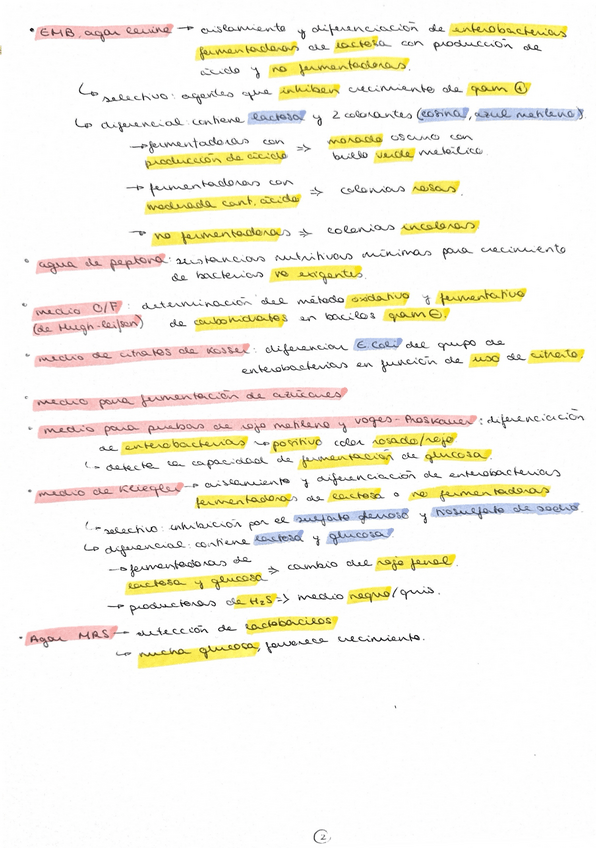 • EMB, agar levine → aislamiento y diferenciación de enterobacterias
fermentadoras de lactosa con producción de
ácido y no fermentadoras.
↳ selectivo: agentes que inhiben crecimiento de gram ⊕
↳ diferencial: contiene lactosa y 2 colorantes (eosina, azul metileno).
→ fermentadoras con => morado oscuro con
producción de ácido brillo verde metálico
→ fermentadoras con => colonias rosas.
moderada cant. ácido
→ no fermentadoras => colonias incoloras
• agua de peptona: sustancias nutritivas mínimas para crecimiento
de bacterias no exigentes.
• medio O/F: determinación del método oxidativo y fermentativo
(de Hugh-leifson) de carbohidratos en bacilos gram ⊖.
• medio de citratos de Kosser: diferenciar E.Coli del grupo de
enterobacterias en función de uso de citrato.
• medio para fermentación de azúcares
• medio para pruebas de rojo metileno y voges-Proskauer: diferenciación
de enterobacterias → positivo color rosado/rojo
↳ detecta la capacidad de fermentación de glucosa.
• medio de Kliegler → aislamiento y diferenciación de enterobacterias
fermentadoras de lactosa o no fermentadoras
↳ selectivo: inhibición por el sulfato ferroso y tiosulfato de sodio.
↳ diferencial: contiene lactosa y glucosa.
→ fermentadoras de => cambio del rojo fenol.
lactosa y glucosa
→ productoras de H₂S => medio negro/gris.
• Agar MRS → detección de lactobacilos
↳ mucha glucosa, favorece crecimiento.
2